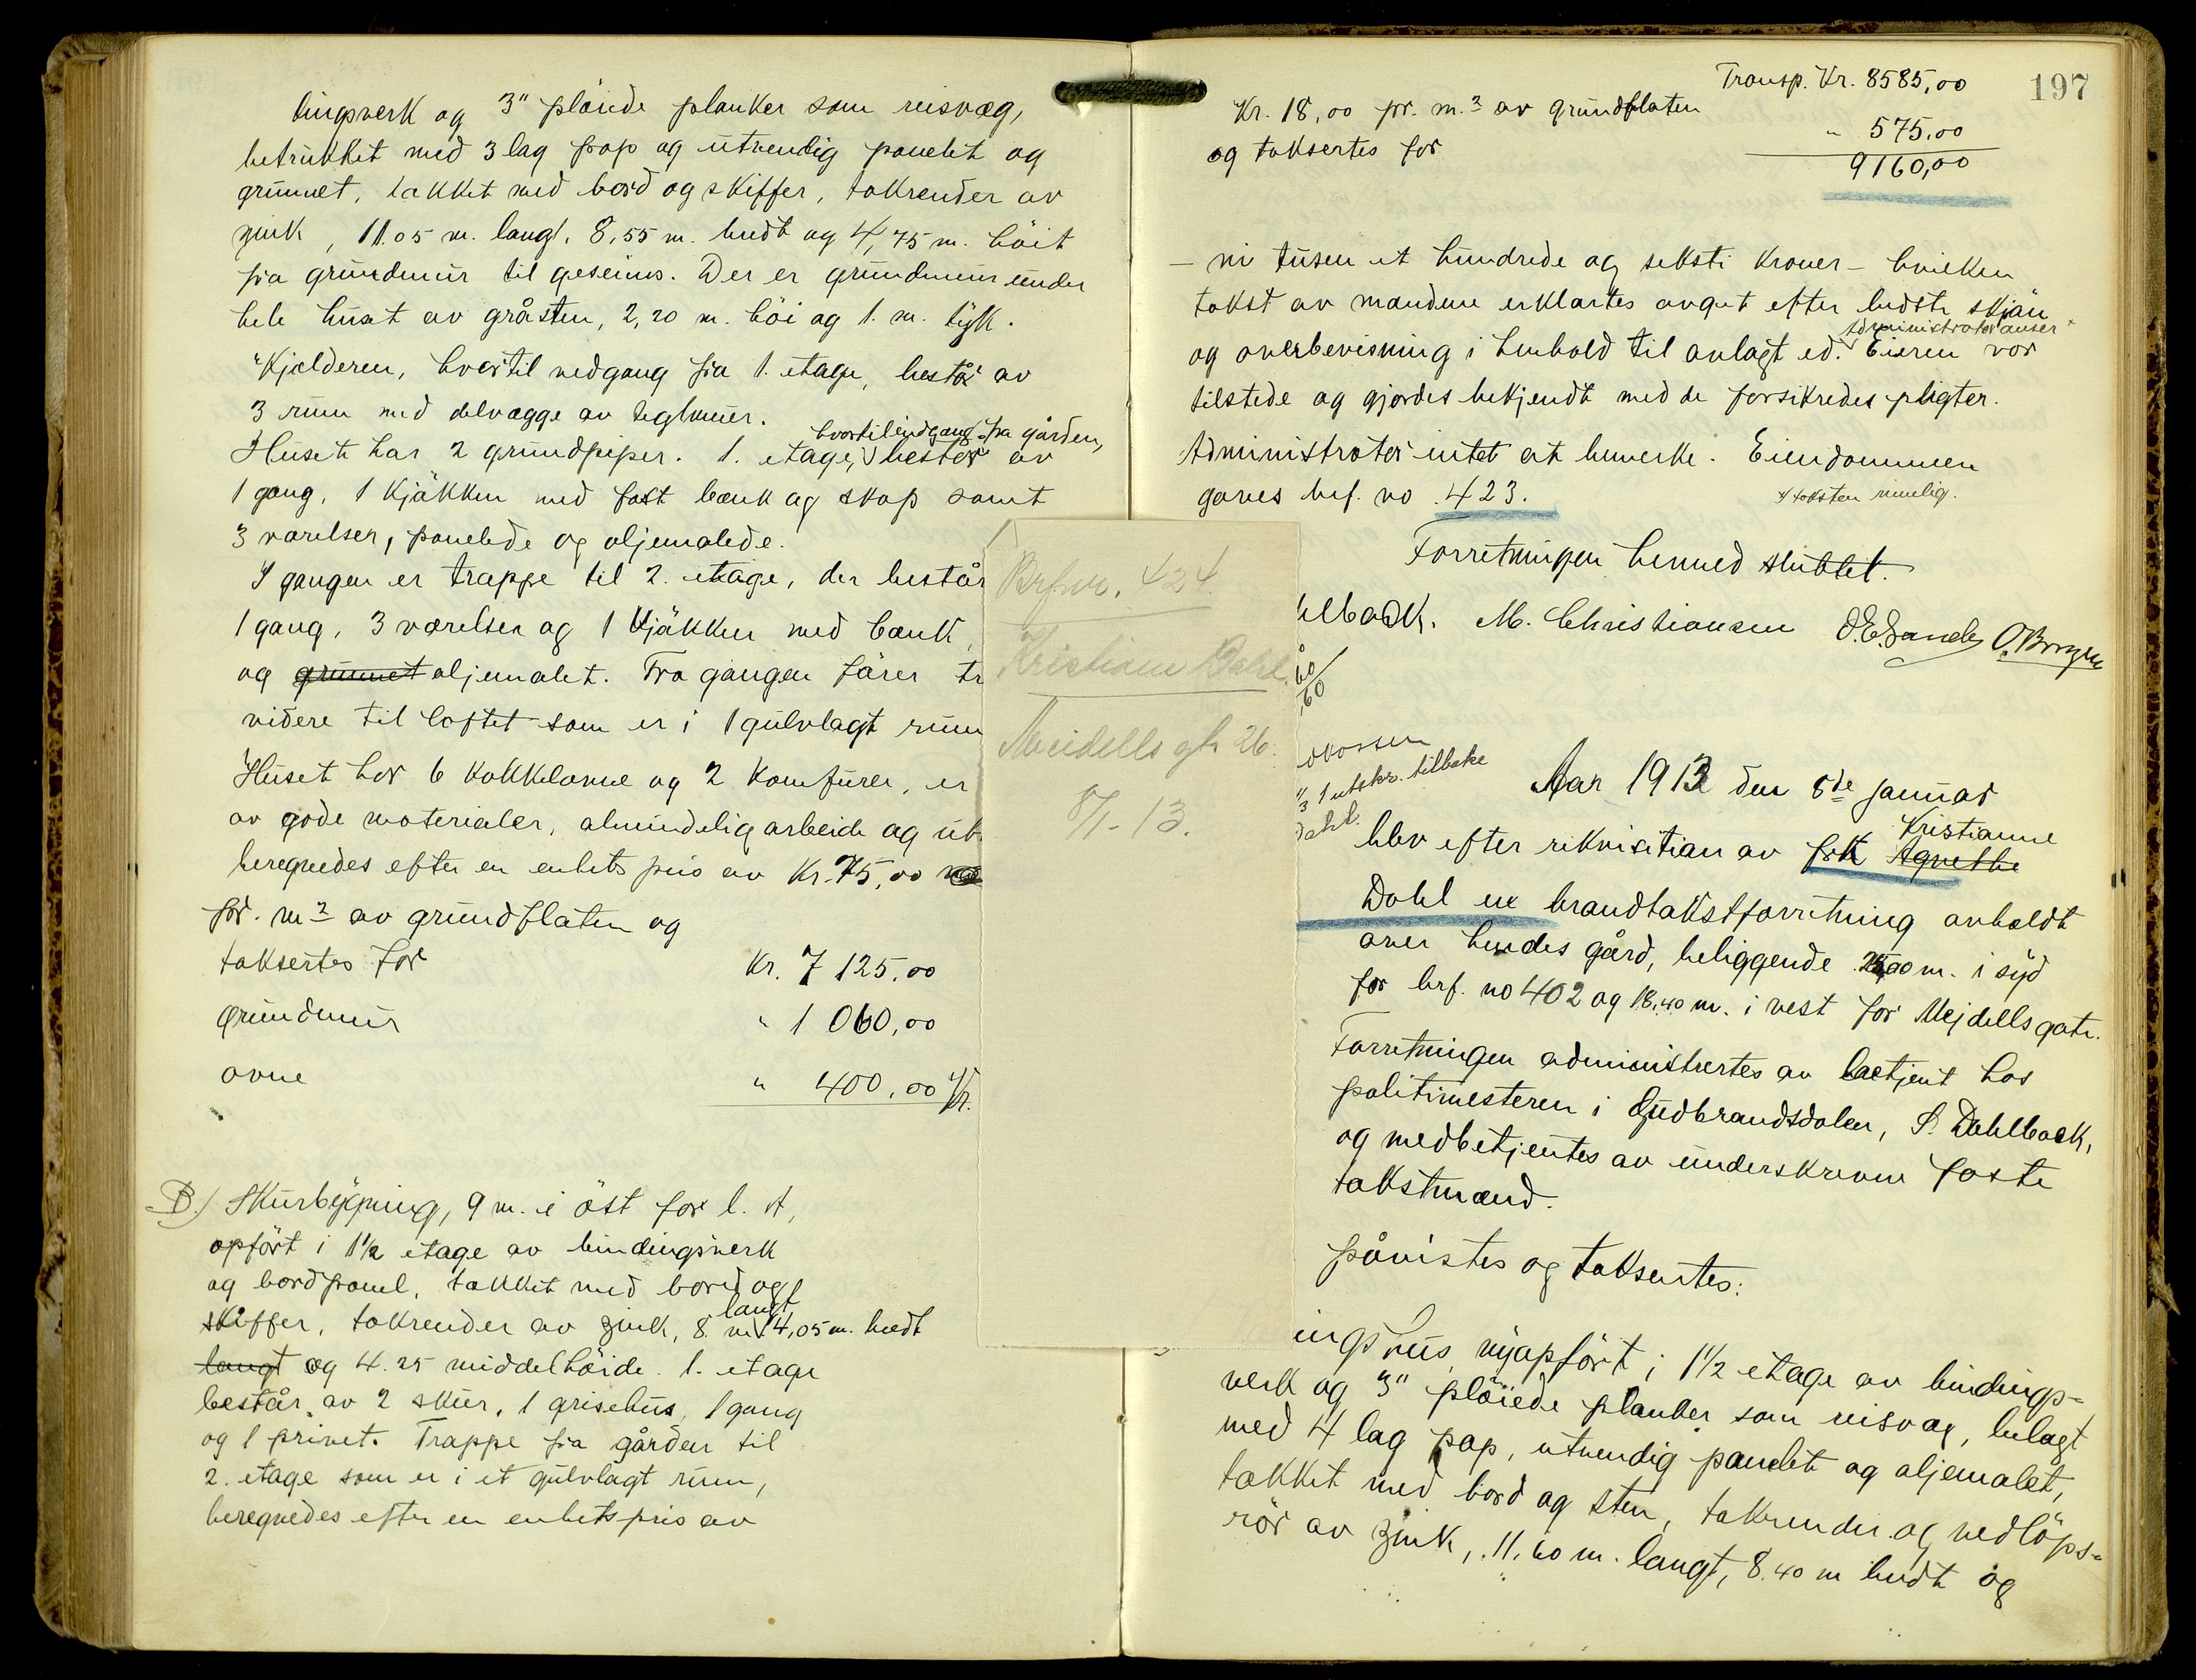 tingverk og 3" pløiede planker som reisvæg,
betrukket med 3 lag pap og utvendig panelet og
grunnet, takket med bord og skiffer, takrender av
zink, 11.05 m. langt, 8,55 m. bredt og 4,75 m. höit
fra grundmur til gesims. Der er grundmur under
hele huset av gråsten, 2,20 m. höi og 1. m. tyk.
Kjelderen, hvortil nedgang fra 1. etage, består av
3 rum med delvægge av teglmur.
hvortil indgang fra gården,
Huset har 2 grundpiper. 1. etage, består av
1 gang, 1 kjökken med fast bænk og skap samt
3 værelser, panelede og oljemalede.
I gangen er trappe til 2. etage, der består
1 gang, 3 værelser og 1 kjökken med bænk,
og grunnet oljemalet. Fra gangen förer tr
videre til loftet som er i 1 gulvlagt rum
Huset har 6 kakkelovne og 2 komfurer, er
av gode materialer, almindelig arbeide og
beregnedes efter en enhets pris av Kr. 75,00
pr. m² av grundflaten og
taksertes for Kr. 7 125.00
grundmur " 1 060,00
ovne " 400,00 Kr.
B.) Skurbygning, 9 m. i öst for l. A,
opfört i 1½ etage av bindingsverk
og bordpanel, takket med bord og
langt
skiffer, takrender av zink, 8. m 4,05 m. bredt
langt og 4.25 middelhöide. 1. etage
består av 2 skur, 1 grisehus, 1 gang
og 1 privet. Trappe fra gården til
2. etage som er i et gulvlagt rum,
beregnedes efter en enhetspris av
Brf.nr. 424.
Kristiane Dahl.
Meidells gt. 26.
8/1-13.
197
Transp. Kr. 8585,00
Kr. 18,00 pr. m.² av grundflaten
og taksertes for " 575.00
9160,00
- ni tusen et hundrede og seksti kroner - hvilken
takst av mændene erklærtes avgit efter bedste skjön
Administrator anser x
og overbevisning i henhold til avlagt ed. Eieren var
tilstede og gjordes bekjendt med de forsikredes pligter.
Administrator intet at bemerke. Eiendommen
gaves brf. no 423.
x/ taksten rimelig.
Forretningen hermed sluttet.
hlback. M. Christiansen O. E. Sande O. Borgen
1 utskr. tilbake
Dahl.
Aar 1913 den 8de januar
Kristianne
blev efter rekvisition av frk Agnethe
Dahl en brandtakstforretning avholdt
over hendes gård, beliggende m. i syd
for brf. no 402 og 18,40 m. i vest for Mejdellsgate.
Forretningen administrertes av betjent hos
politimesteren i Gudbrandsdalen, S. Dahlback,
og medbetjentes av underskrevne faste
takstmænd.
påvistes og taksertes:
ingshus nyopfört i 1½ etage av bindings-
verk og 3" plöiede planker som reisvæg, belagt
med 4 lag pap, utvendig panelet og oljemalet,
takket med bord og sten, takrender og nedlöps-
rör av zink, 11,60 m. langt, 8.40 m bredt og